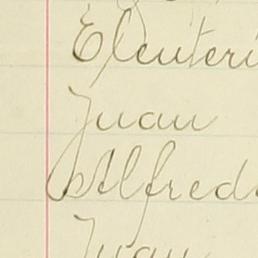 Eleuteri
Juan
Alfred
Juan